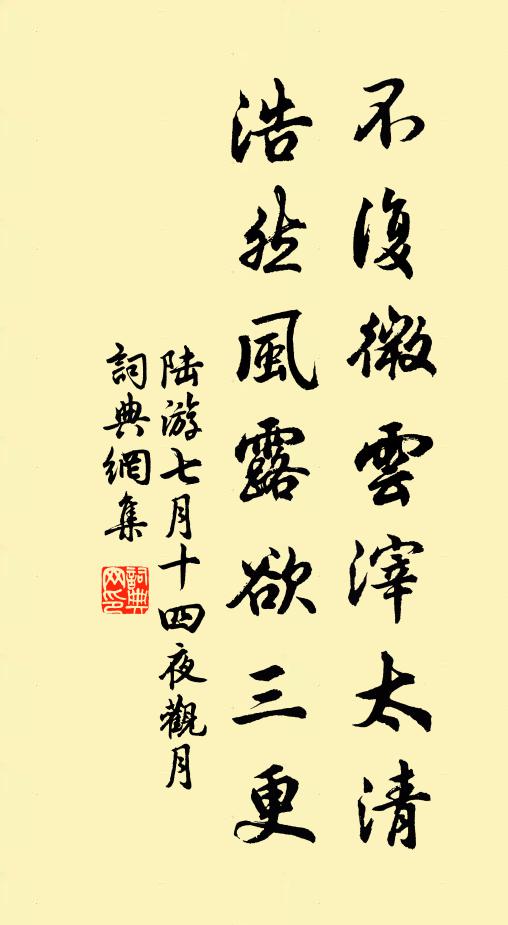 不復微雲滓太清
浩然風露欲三更
陸游七月十四夜觀月
詞典網集
詞典網印